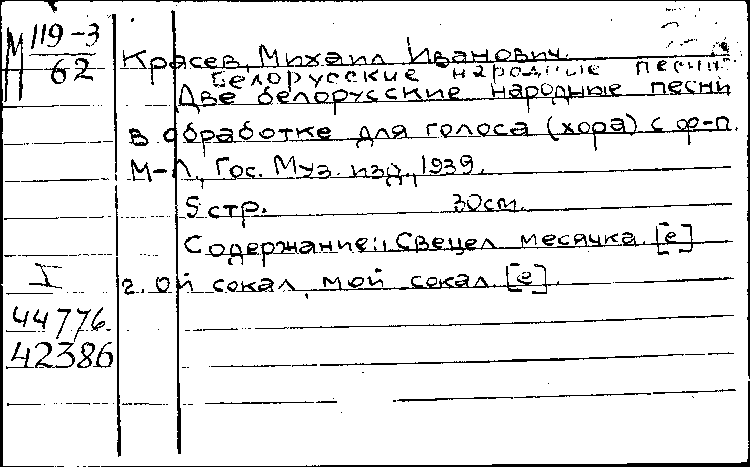 М 119-3
62
Красев, Михаил Иванович.
Белорусские народные песни.
Две белорусские народные песни
в обработке для голоса (хора) с ф-п.
М-Л, Гос. Муз. изд., 1939.
5 стр. 30 см.
Содержание: 1. Свецел месячка. [е]
2. Ой сокал, мой сокал. [е].
I
44776.
42386